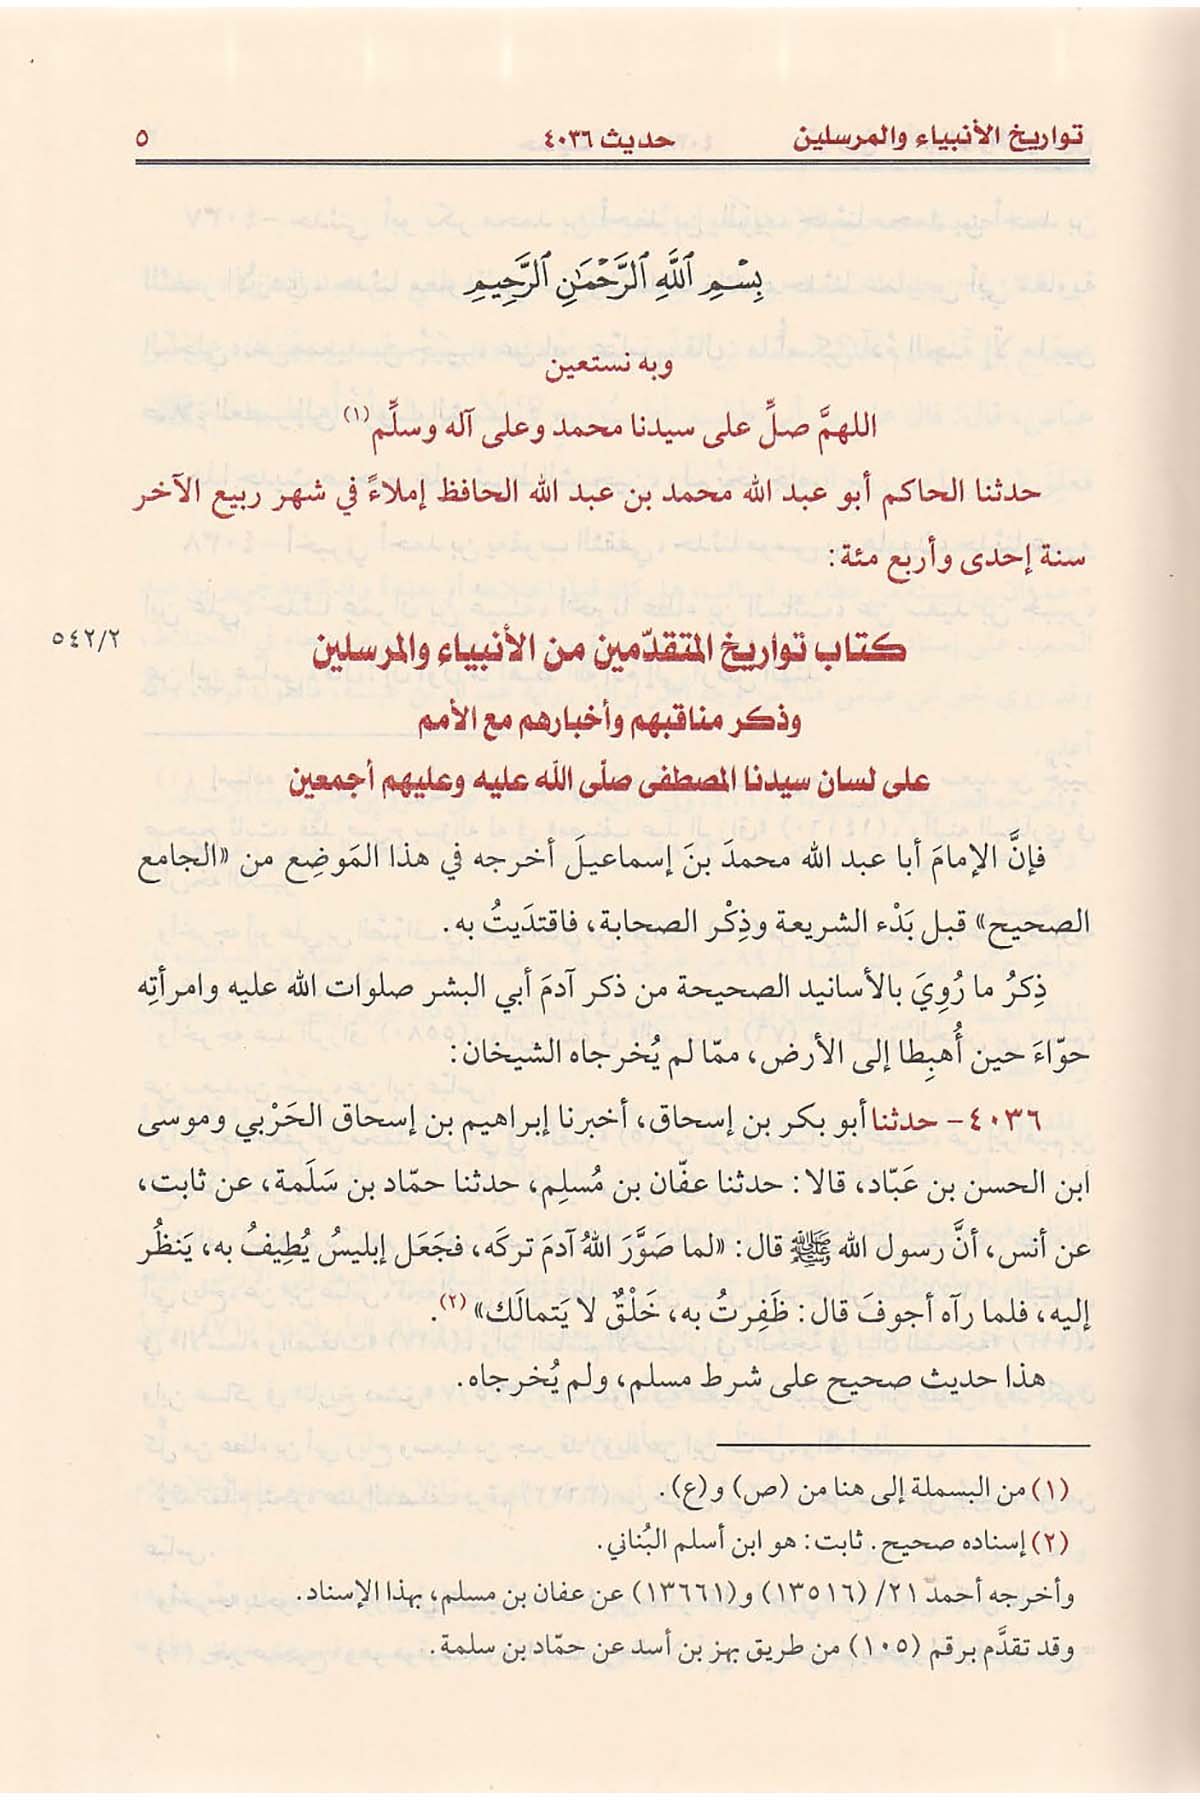 تواريخ الأنبياء والمرسلين حديث ٤٠٣٦ ٥
بِسْمِ ٱللَّهِ ٱلرَّحْمَٰنِ ٱلرَّحِيمِ
وبه نستعين
اللهمَّ صلِّ على سيدنا محمد وعلى آله وسلِّم(١)
حدثنا الحاكم أبو عبد الله محمد بن عبد الله الحافظ إملاءً في شهر ربيع الآخر
سنة إحدى وأربع مئة:
كتاب تواريخ المتقدّمين من الأنبياء والمرسلين ٥٤٢/٢
وذكر مناقبهم وأخبارهم مع الأمم
على لسان سيدنا المصطفى صلّى الله عليه وعليهم أجمعين
فإنَّ الإمامَ أبا عبد الله محمدَ بنَ إسماعيلَ أخرجه في هذا المَوضِع من «الجامع
الصحيح» قبل بَدْء الشريعة وذِكْر الصحابة، فاقتدَيتُ به.
ذِكرُ ما رُوِيَ بالأسانيد الصحيحة من ذكر آدمَ أبي البشر صلوات الله عليه وامرأتِه
حوّاءَ حين أُهبِطا إلى الأرض، ممّا لم يُخرجاه الشيخان:
٤٠٣٦- حدثنا أبو بكر بن إسحاق، أخبرنا إبراهيم بن إسحاق الحَرْبي وموسى
ابن الحسن بن عَبّاد، قالا: حدثنا عفّان بن مُسلِم، حدثنا حمّاد بن سَلَمة، عن ثابت،
عن أنس، أنَّ رسول الله ﷺ قال: «لما صَوَّرَ اللهُ آدمَ تركَه، فجَعَل إبليسُ يُطِيفُ به، يَنظُر
إليه، فلما رآه أجوفَ قال: ظَفِرتُ به، خَلْقٌ لا يَتمالَك»(٢).
هذا حديث صحيح على شرط مسلم، ولم يُخرجاه.
(١) من البسملة إلى هنا من (ص) و(ع).
(٢) إسناده صحيح. ثابت: هو ابن أسلم البُناني.
وأخرجه أحمد ٢١/ (١٣٥١٦) و(١٣٦٦١) عن عفان بن مسلم، بهذا الإسناد.
وقد تقدَّم برقم (١٠٥) من طريق بهز بن أسد عن حمّاد بن سلمة.